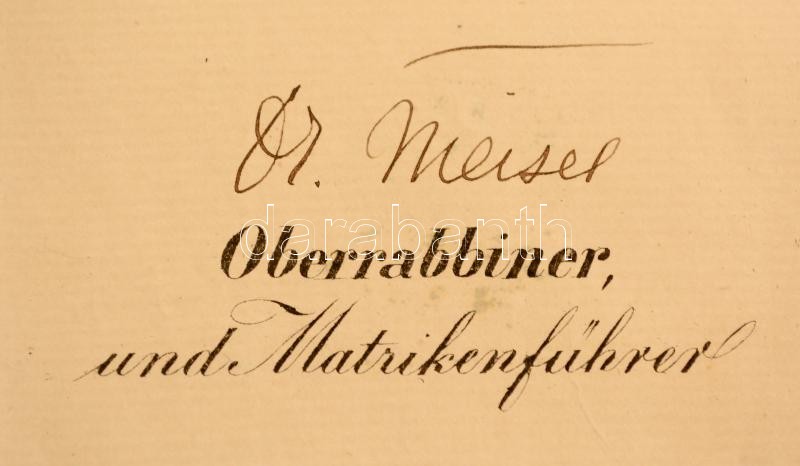 Dr. Meisel
darabanth
Oberrabbiner,
und Matrikenführer